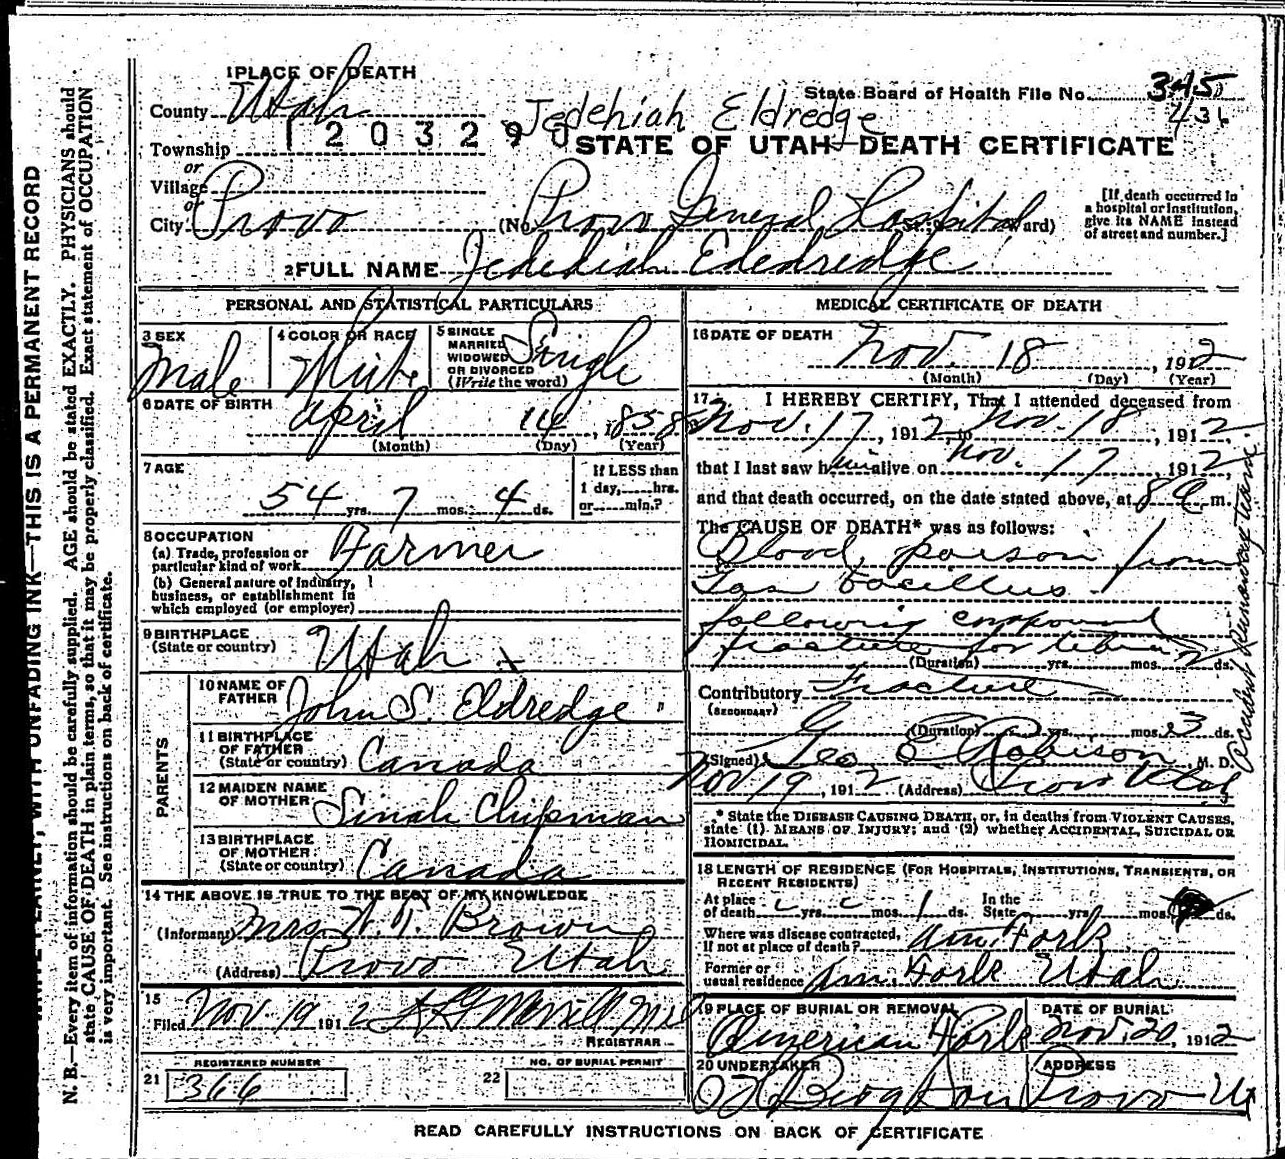 1 PLACE OF DEATH
County Utah
State Board of Health File No. 345
431
Jedehiah Eldredge
1203290
STATE OF UTAH—DEATH CERTIFICATE
Township
or
Village
or
City Provo
(No. Provo General Hospital St.; Ward)
[If death occurred in a hospital or institution, give its NAME instead of street and number.]
2 FULL NAME Jedediah Ededredge
PERSONAL AND STATISTICAL PARTICULARS
3 SEX
Male
4 COLOR OR RACE
White
5 SINGLE
MARRIED
WIDOWED
OR DIVORCED
(Write the word)
Single
6 DATE OF BIRTH
April 14, 1858
(Month) (Day) (Year)
7 AGE
54 yrs. 7 mos. 4 ds.
If LESS than
1 day, hrs.
or min.?
8 OCCUPATION
(a) Trade, profession or
particular kind of work Farmer
(b) General nature of Industry,
business, or establishment in
which employed (or employer)
9 BIRTHPLACE
(State or country) Utah
PARENTS
10 NAME OF
FATHER John S. Eldredge
11 BIRTHPLACE
OF FATHER
(State or country) Canada
12 MAIDEN NAME
OF MOTHER Sinah Chipman
13 BIRTHPLACE
OF MOTHER
(State or country) Canada
14 THE ABOVE IS TRUE TO THE BEST OF MY KNOWLEDGE
(Informant) Brown
(Address) Provo Utah
15
Filed Nov. 19 1912 Merrill
REGISTRAR
REGISTERED NUMBER
21 366
NO. OF BURIAL PERMIT
22
MEDICAL CERTIFICATE OF DEATH
16 DATE OF DEATH
Nov. 18, 1912
(Month) (Day) (Year)
17 I HEREBY CERTIFY, That I attended deceased from
Nov. 17, 1912, to Nov. 18, 1912
that I last saw him alive on Nov. 17, 1912
and that death occurred, on the date stated above, at 8 a m.
The CAUSE OF DEATH* was as follows:
Blood poison from
Gas bacillus
following compound
fracture
(Duration) yrs. mos. 2 ds.
Contributory Fracture
(SECONDARY)
(Duration) yrs. mos. 3 ds.
(Signed) Geo E Robison, M. D.
Nov 19, 1912 (Address) Provo Utah
Accident
* State the DISEASE CAUSING DEATH, or, in deaths from VIOLENT CAUSES,
state (1) MEANS OF INJURY; and (2) whether ACCIDENTAL, SUICIDAL OR
HOMICIDAL.
18 LENGTH OF RESIDENCE (FOR HOSPITALS, INSTITUTIONS, TRANSIENTS, OR
RECENT RESIDENTS)
At place
of death yrs. mos. 1 ds.
In the
State yrs. mos. ds.
Where was disease contracted,
If not at place of death? Am. Fork
Former or
usual residence Am. Fork Utah
19 PLACE OF BURIAL OR REMOVAL
American Fork
DATE OF BURIAL
Nov. 20, 1912
20 UNDERTAKER
ADDRESS
Provo Ut
READ CAREFULLY INSTRUCTIONS ON BACK OF CERTIFICATE
WITH UNFADING INK—THIS IS A PERMANENT RECORD
N. B.—Every item of information should be carefully supplied. AGE should be stated EXACTLY. PHYSICIANS should
state CAUSE OF DEATH in plain terms, so that it may be properly classified. Exact statement of OCCUPATION
is very important. See instructions on back of certificate.